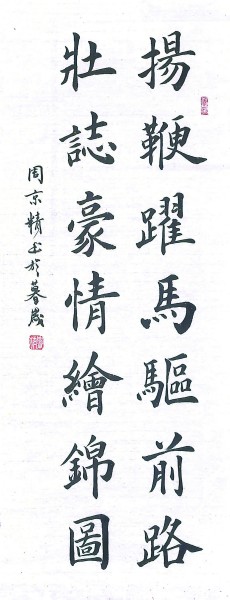 揚鞭躍馬驅前路
壯誌豪情繪錦圖
周京精书於暮歲